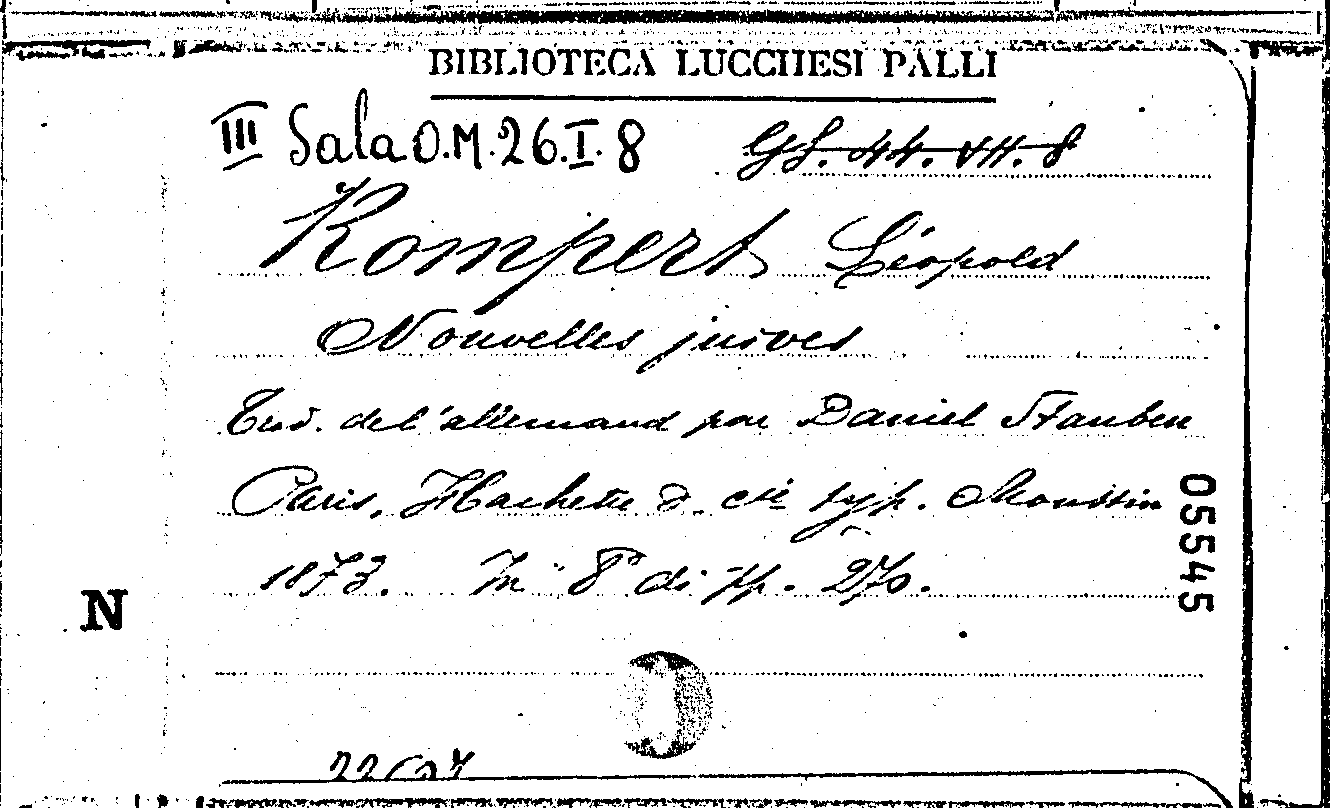 BIBLIOTECA LUCCHESI PALLI
III Sala O.M. 26.I.8 GS. 44. VII. 8
Kompert Léopold
Nouvelles juives
Trad. de l'allemand par Daniel Stauben
Paris, Hachette & cie typ.
1873. In 8° di pp. 270.
N
05545